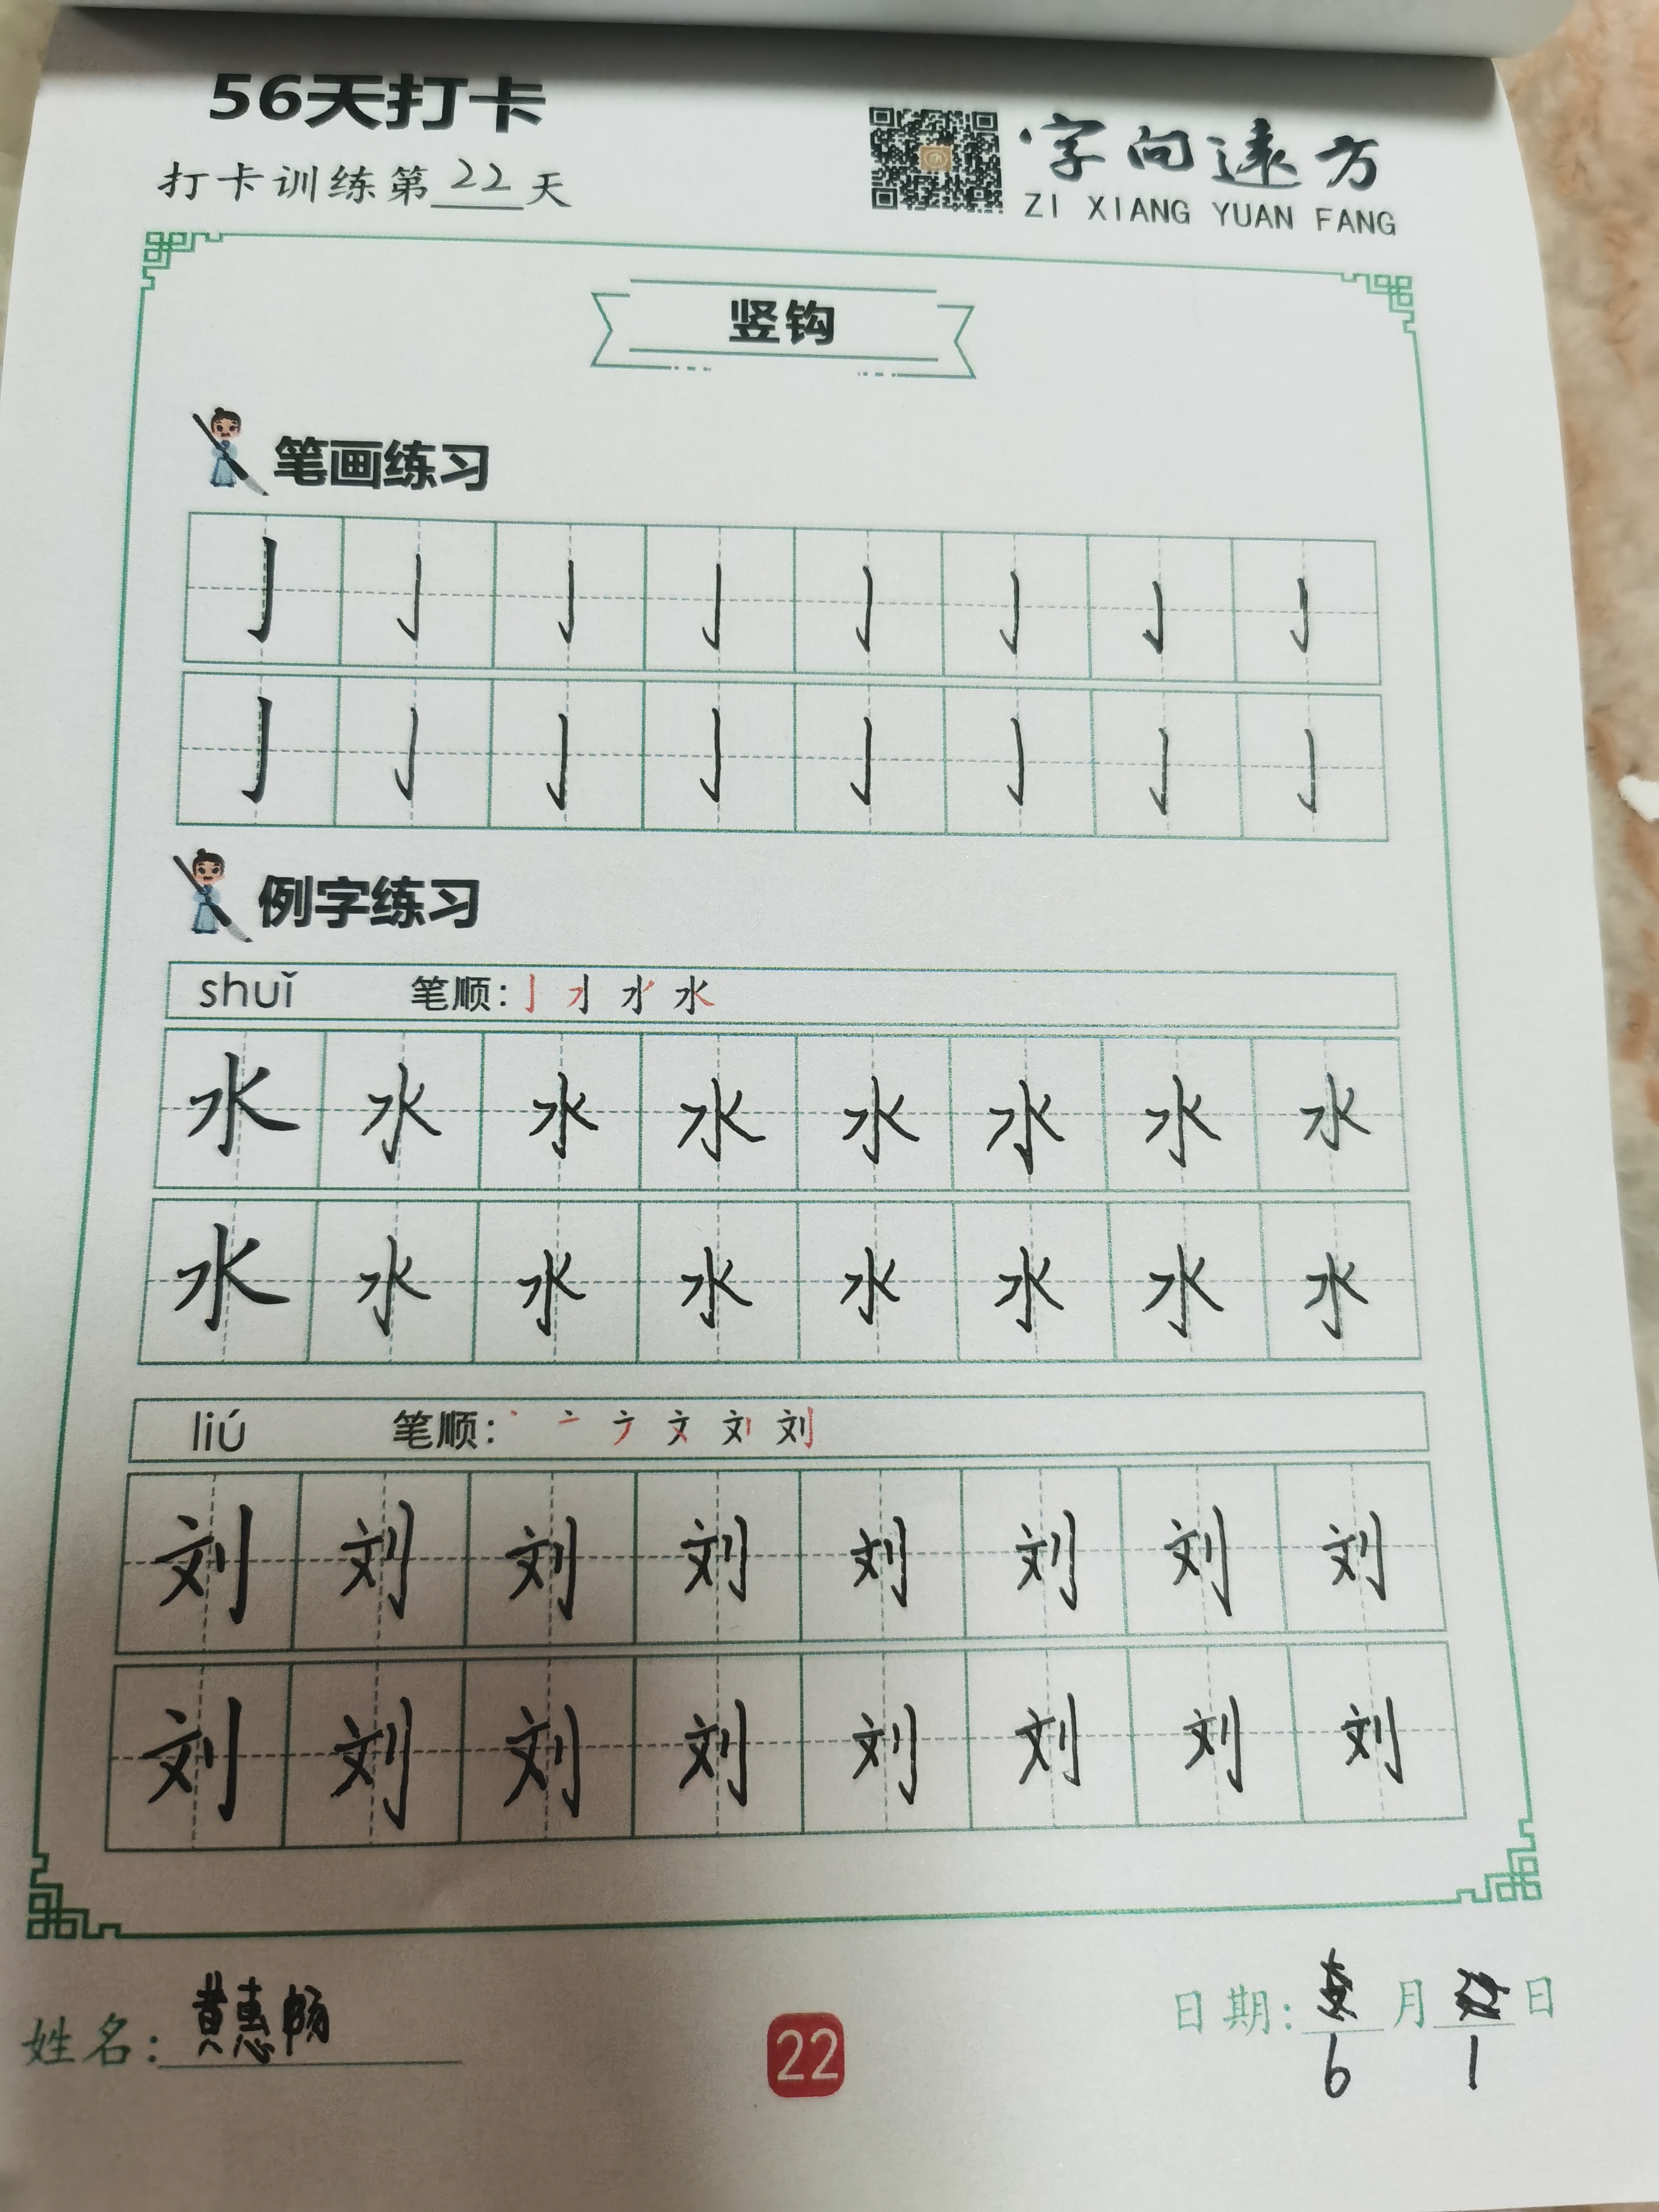 56天打卡
打卡训练第22天
字向远方
ZI XIANG YUAN FANG
竖钩
笔画练习
亅亅亅亅亅亅亅亅
亅亅亅亅亅亅亅亅
例字练习
shuǐ 笔顺：
水水水水水水水水
水水水水水水水水
liú 笔顺：
刘刘刘刘刘刘刘刘
刘刘刘刘刘刘刘刘
姓名：黄惠畅
22
日期：6月1日